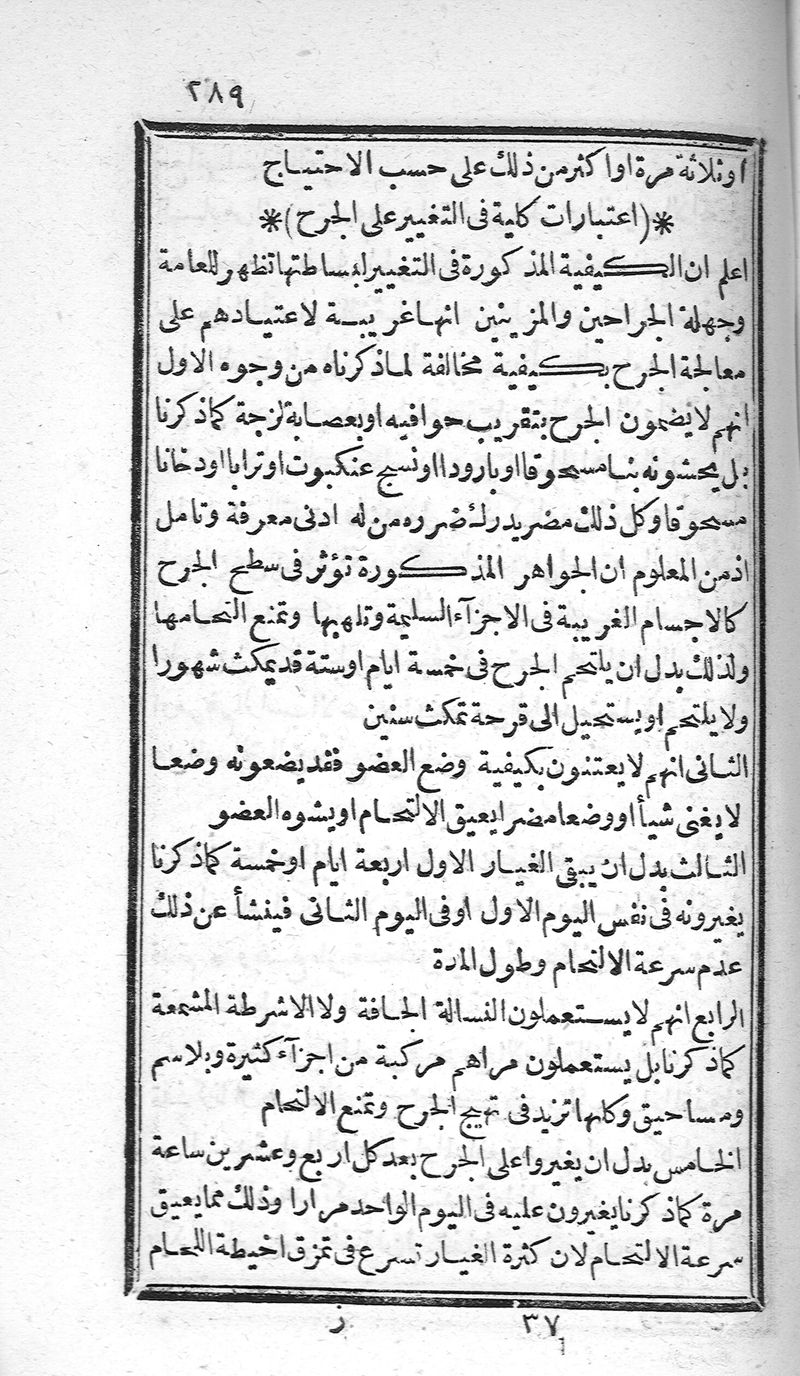 ٢٨٩
اوثلاثة مرة اواكثر من ذلك على حسب الاحتياج
*(اعتبارات كلية فى التغيير على الجرح)*
اعلم ان الكيفية المذكورة فى التغيير لبساطتها تظهر للعامة
وجهلة الجراحين والمزينين انها غريبة لاعتيادهم على
معالجة الجرح بكيفية مخالفة لماذكرناه من وجوه الاول
انهم لايضمون الجرح بتقريب حوافيه اوبعصابة لزجة كماذكرنا
بل يحشونه بنا مسحوقا اوبارودا اونسج عنكبوت اوترابا اودخانا
مسحوقا وكل ذلك مضر يدرك ضرره من له ادنى معرفة وتامل
اذمن المعلوم ان الجواهر المذكورة تؤثر فى سطح الجرح
كالاجسام الغريبة فى الاجزآء السليمة وتلهبها وتمنع التحامها
ولذلك بدل ان يلتحم الجرح فى خمسة ايام اوستة قديمكث شهورا
ولايلتحم اويستحيل الى قرحة تمكث سنين
الثانى انهم لايعتنون بكيفية وضع العضو فقديضعونه وضعا
لايغنى شيأ اووضعا مضرا يعيق الالتحام اويشوه العضو
الثالث بدل ان يبقى الغيار الاول اربعة ايام اوخمسة كماذكرنا
يغيرونه فى نفس اليوم الاول اوفى اليوم الثانى فينشأ عن ذلك
عدم سرعة الالتحام وطول المدة
الرابع انهم لايستعملون النسالة الجافة ولاالاشرطة المشمعة
كماذكرنا بل يستعملون مراهم مركبة من اجزآء كثيرة وبلاسم
ومساحيق وكلها تزيد فى تهيج الجرح وتمنع الالتحام
الخامس بدل ان يغيروا على الجرح بعد كل اربع وعشرين ساعة
مرة كماذكرنا يغيرون عليه فى اليوم الواحد مرارا وذلك ممايعيق
سرعة الالتحام لان كثرة الغيار تسرع فى تمزق اخيطة اللحام
٣٧ ز